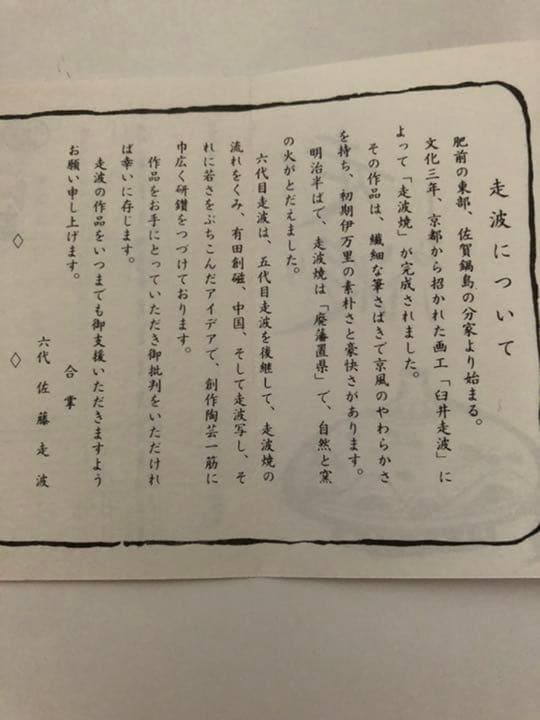 走波について
肥前の東部、佐賀鍋島の分家より始まる。
文化三年、京都から招かれた画工「臼井走波」に
よって「走波焼」が完成されました。
その作品は、繊細な筆さばきで京風のやわらかさ
を持ち、初期伊万里の素朴さと豪快さがあります。
明治半ばで、走波焼は「廃藩置県」で、自然と窯
の火がとだえました。
六代目走波は、五代目走波を後継して、走波焼の
流れをくみ、有田創磁、中国、そして走波写し、そ
れに若さをぶちこんだアイデアで、創作陶芸一筋に
巾広く研鑽をつづけております。
作品をお手にとっていただき御批判をいただけれ
ば幸いに存じます。
走波の作品をいつまでも御支援いただきますよう
お願い申し上げます。
合掌
六代 佐藤走波